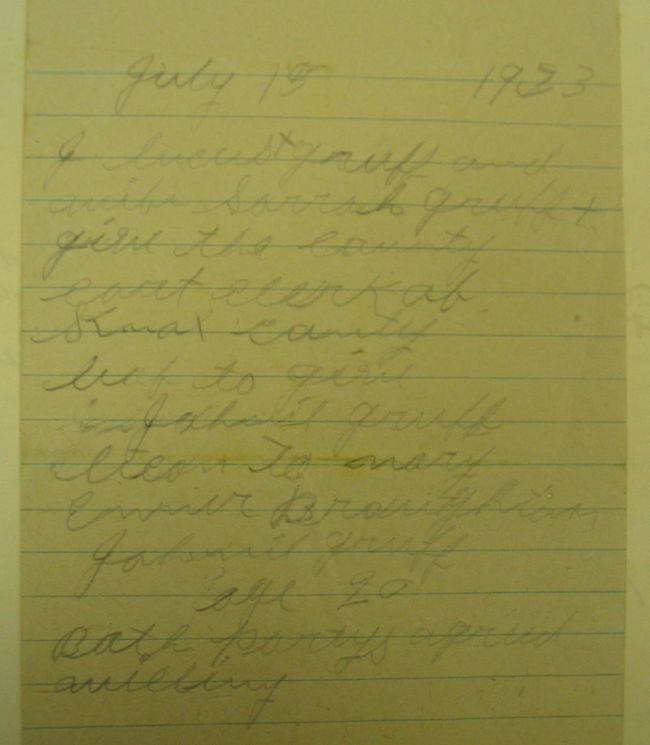 July 15 1923
I lucust gruff and
wife Sarrah gruff +
give the county
cort clerk of
Knox county
leef to give
Johnie gruff
liceon to mary
Broughton
Johnie gruff
age 20
Both partys agreed
willing